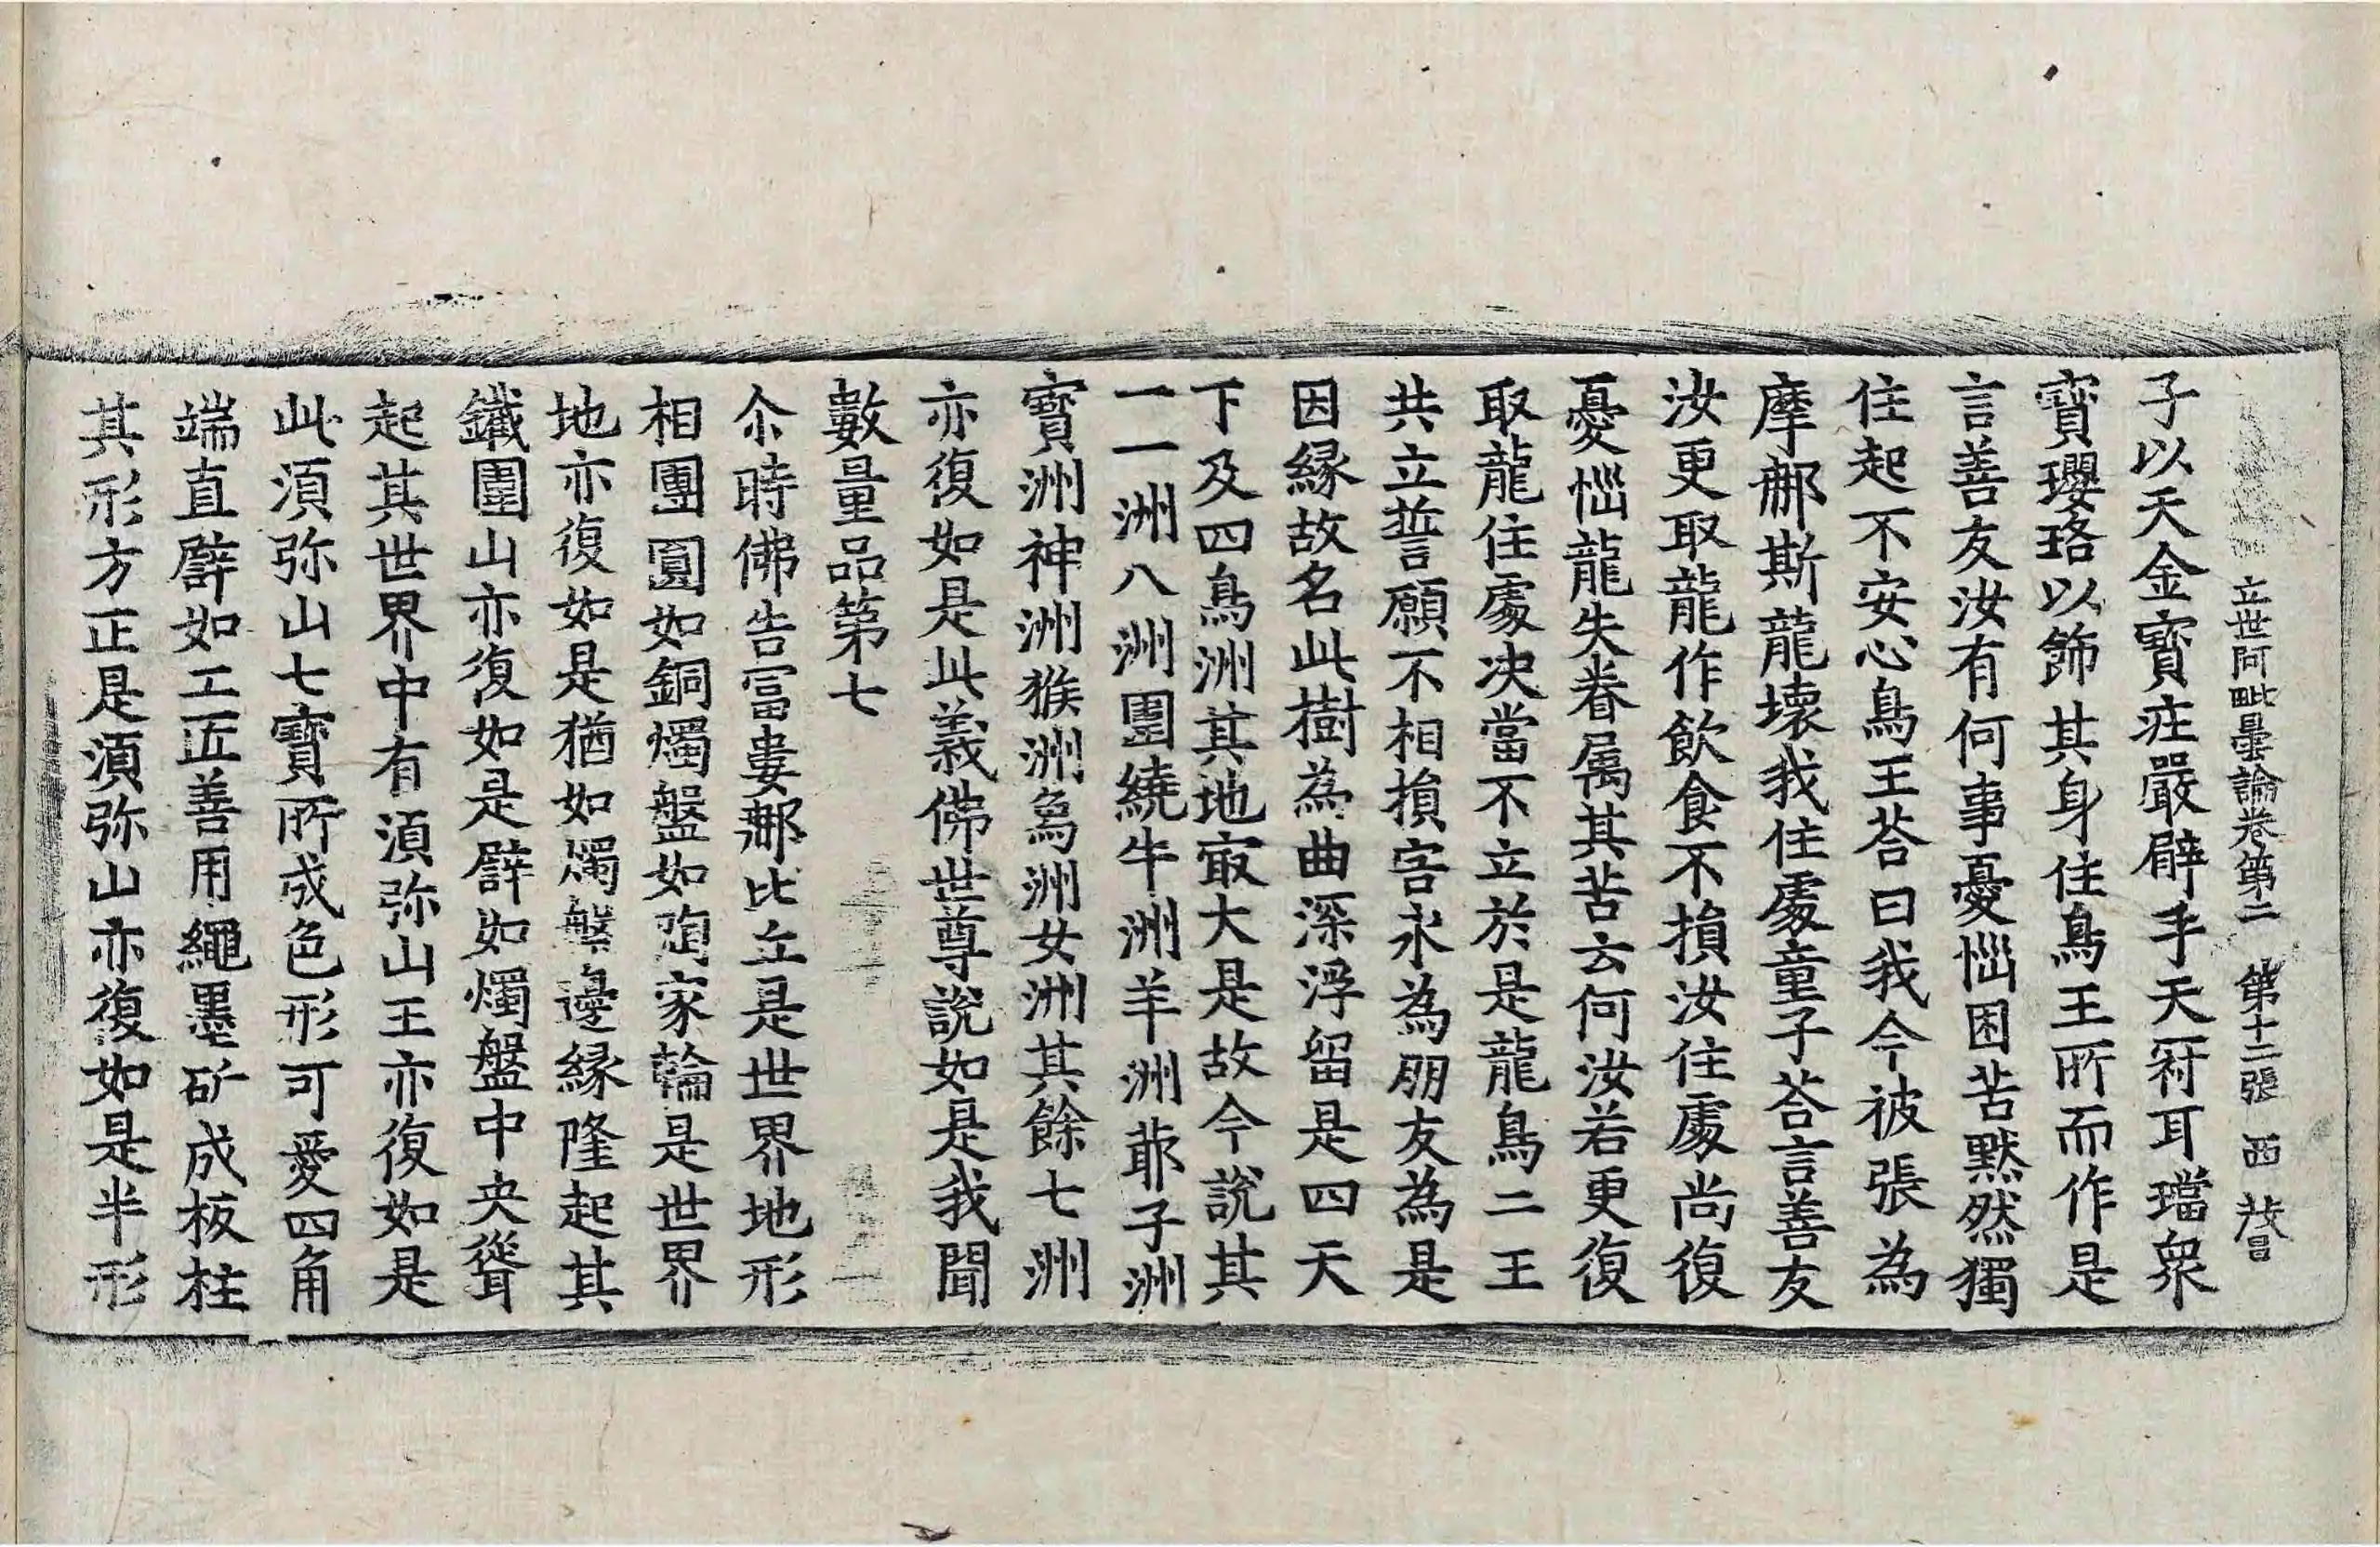 立世阿毗曇論卷第二 第十二張 西
子以天金寶庄嚴臂手天冠耳璫眾
寶瓔珞以飾其身住鳥王所而作是
言善友汝有何事憂惱困苦默然獨
住起不安心鳥王荅曰我今被張為
摩𨚗斯龍壞我住處童子荅言善友
汝更取龍作飲食不損汝住處尚復
憂惱龍失眷属其苦云何汝若更復
取龍住處决當不立於是龍鳥二王
共立誓願不相損害永為朋友為是
因縁故名此樹為曲深浮留是四天
下及四鳥洲其地㝡大是故今說其
一一洲八洲圍繞牛洲羊洲耶子洲
寶洲神洲猴洲烏洲女洲其餘七洲
亦復如是此義佛世尊說如是我聞
數量品第七
尒時佛告富婁𨚗比丘是世界地形
相團圓如銅燭盤如陶家輪是世界
地亦復如是猶如燭盤邊緣隆起其
鐵圍山亦復如是譬如燭盤中央聳
起其世界中有湏弥山王亦復如是
此湏弥山七寶所成色形可愛四角
端直譬如工匠善用繩墨斫成板柱
其形方正是湏弥山亦復如是半形